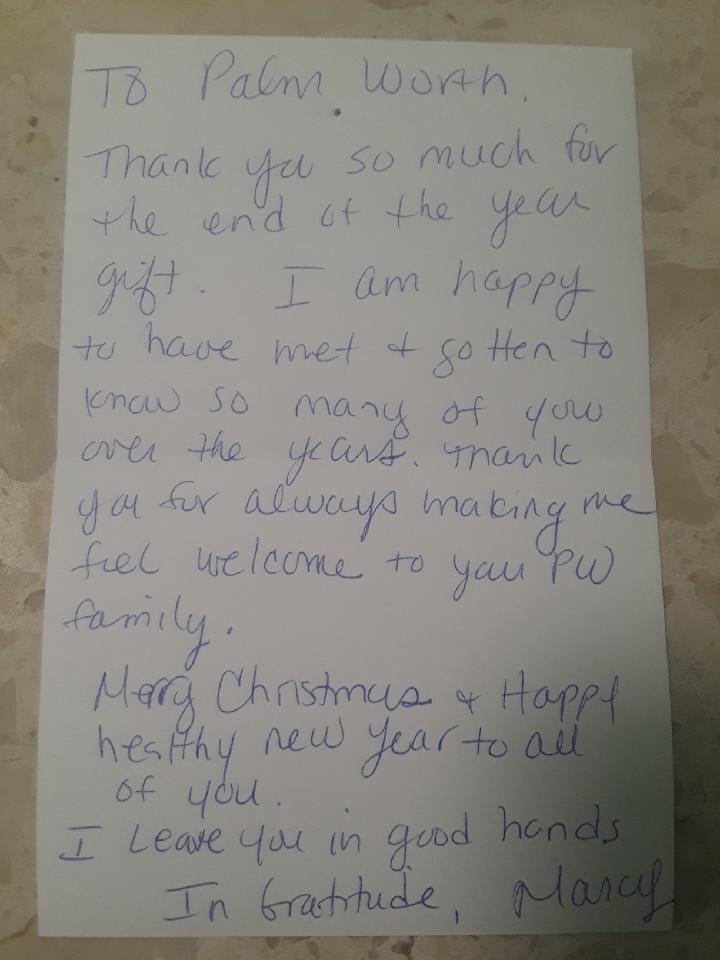 To Palm Worth.
Thank you so much for
the end of the year
gift. I am happy
to have met + gotten to
know so many of you
over the years. Thank
you for always making me
feel welcome to your PW
family.
Merry Christmas + Happy
healthy new year to all
of you.
I Leave you in good hands
In Gratitude, Marcy